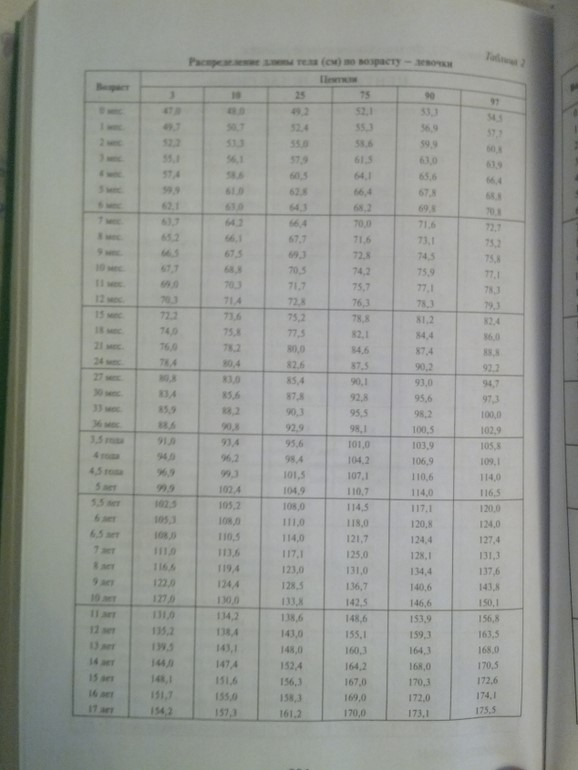 Таблица 2
Распределение длины тела (см) по возрасту – девочки
Возраст Центили
3 10 25 75 90 97
0 мес. 47,0 48,0 49,2 52,1 53,3 54,5
1 мес. 49,7 50,7 52,4 55,3 56,9 57,7
2 мес. 52,2 53,3 55,0 58,6 59,9 60,8
3 мес. 55,1 56,1 57,9 61,5 63,0 63,9
4 мес. 57,4 58,6 60,5 64,1 65,6 66,4
5 мес. 59,9 61,0 62,8 66,4 67,8 68,8
6 мес. 62,1 63,0 64,3 68,2 69,8 70,8
7 мес. 63,7 64,2 66,4 70,0 71,6 72,7
8 мес. 65,2 66,1 67,7 71,6 73,1 75,2
9 мес. 66,5 67,5 69,3 72,8 74,5 75,8
10 мес. 67,7 68,8 70,5 74,2 75,9 77,1
11 мес. 69,0 70,3 71,7 75,7 77,1 78,3
12 мес. 70,3 71,4 72,8 76,3 78,3 79,3
15 мес. 72,2 73,6 75,2 78,8 81,2 82,4
18 мес. 74,0 75,8 77,5 82,1 84,4 86,0
21 мес. 76,0 78,2 80,0 84,6 87,4 88,8
24 мес. 78,4 80,4 82,6 87,5 90,2 92,2
27 мес. 80,8 83,0 85,4 90,1 93,0 94,7
30 мес. 83,4 85,6 87,8 92,8 95,6 97,3
33 мес. 85,9 88,2 90,3 95,5 98,2 100,0
36 мес. 88,6 90,8 92,9 98,1 100,5 102,9
3,5 года 91,0 93,4 95,6 101,0 103,9 105,8
4 года 94,0 96,2 98,4 104,2 106,9 109,1
4,5 года 96,9 99,3 101,5 107,1 110,6 114,0
5 лет 99,9 102,4 104,9 110,7 114,0 116,5
5,5 лет 102,5 105,2 108,0 114,5 117,1 120,0
6 лет 105,3 108,0 111,0 118,0 120,8 124,0
6,5 лет 108,0 110,5 114,0 121,7 124,4 127,4
7 лет 111,0 113,6 117,1 125,0 128,1 131,3
8 лет 116,6 119,4 123,0 131,0 134,4 137,6
9 лет 122,0 124,4 128,5 136,7 140,6 143,8
10 лет 127,0 130,0 133,8 142,5 146,6 150,1
11 лет 131,0 134,2 138,6 148,6 153,9 156,8
12 лет 135,2 138,4 143,0 155,1 159,3 163,5
13 лет 139,5 143,1 148,0 160,3 164,3 168,0
14 лет 144,0 147,4 152,4 164,2 168,0 170,5
15 лет 148,1 151,6 156,3 167,0 170,3 172,6
16 лет 151,7 155,0 158,3 169,0 172,0 174,1
17 лет 154,2 157,3 161,2 170,0 173,1 175,5